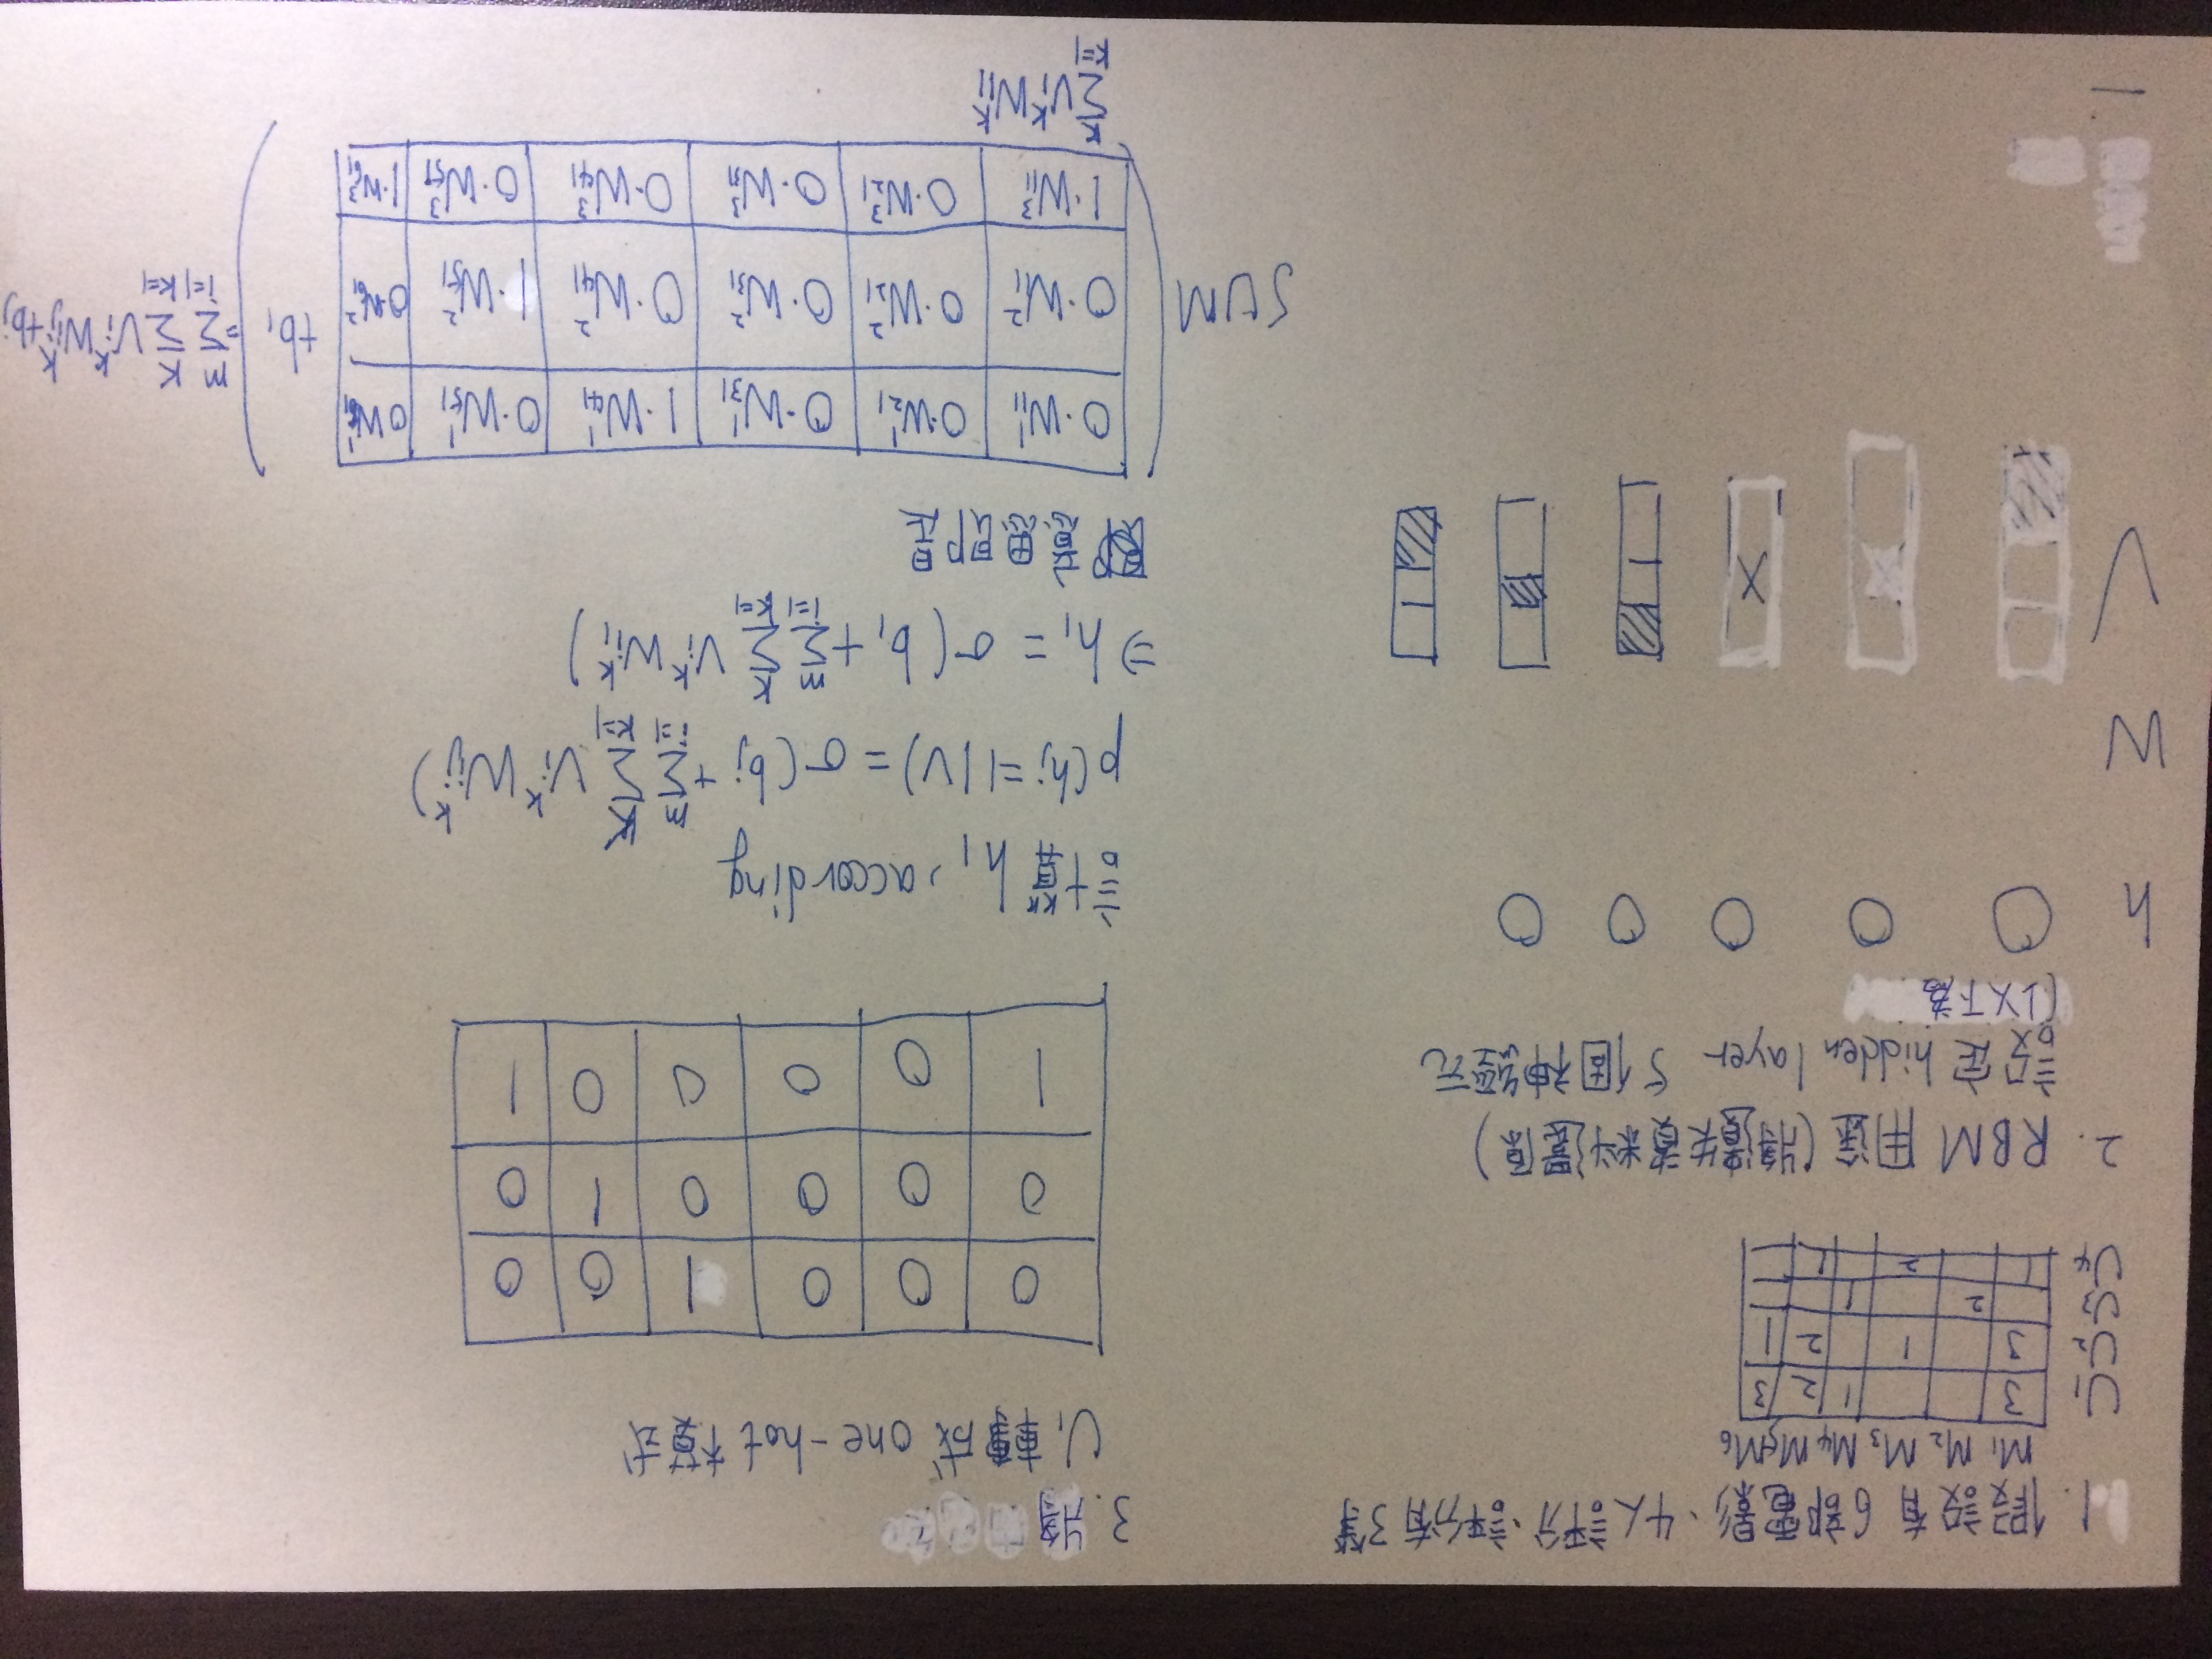 1. 假設有 6部電影、4人評分、評分有3等
M1 M2 M3 M4 M5 M6
U1 3 1 2 3
U2 3 1 2 1
U3 2 1
U4 1 2 1
2. RBM 用途(將遺失資料還原)
設定 hidden layer 5個神經元
(以下為
h
W
V
3. 將
U1 轉成 one-hot 模式
0 0 0 1 0 0
0 0 0 0 1 0
1 0 0 0 0 1
計算 h1, according
p(hj=1|V) = σ(bj + Σ_{i=1}^{m} Σ_{k=1}^{K} Vi^k Wij^k)
⇒ h1 = σ(b1 + Σ_{i=1}^{m} Σ_{k=1}^{K} Vi^k Wi1^k)
意思即是
0·W11^1 0·W21^1 0·W31^1 1·W41^1 0·W51^1 0W61^1
SUM( 0·W11^2 0·W21^2 0·W31^2 0·W41^2 1·W51^2 0·W61^2 +b1 ) = Σ_{i=1}^{m} Σ_{k=1}^{K} Vi^k Wij^k + bj
1·W11^3 0·W21^3 0·W31^3 0·W41^3 0·W51^3 1·W61^3
Σ_{k=1}^{K} V1^k W11^k